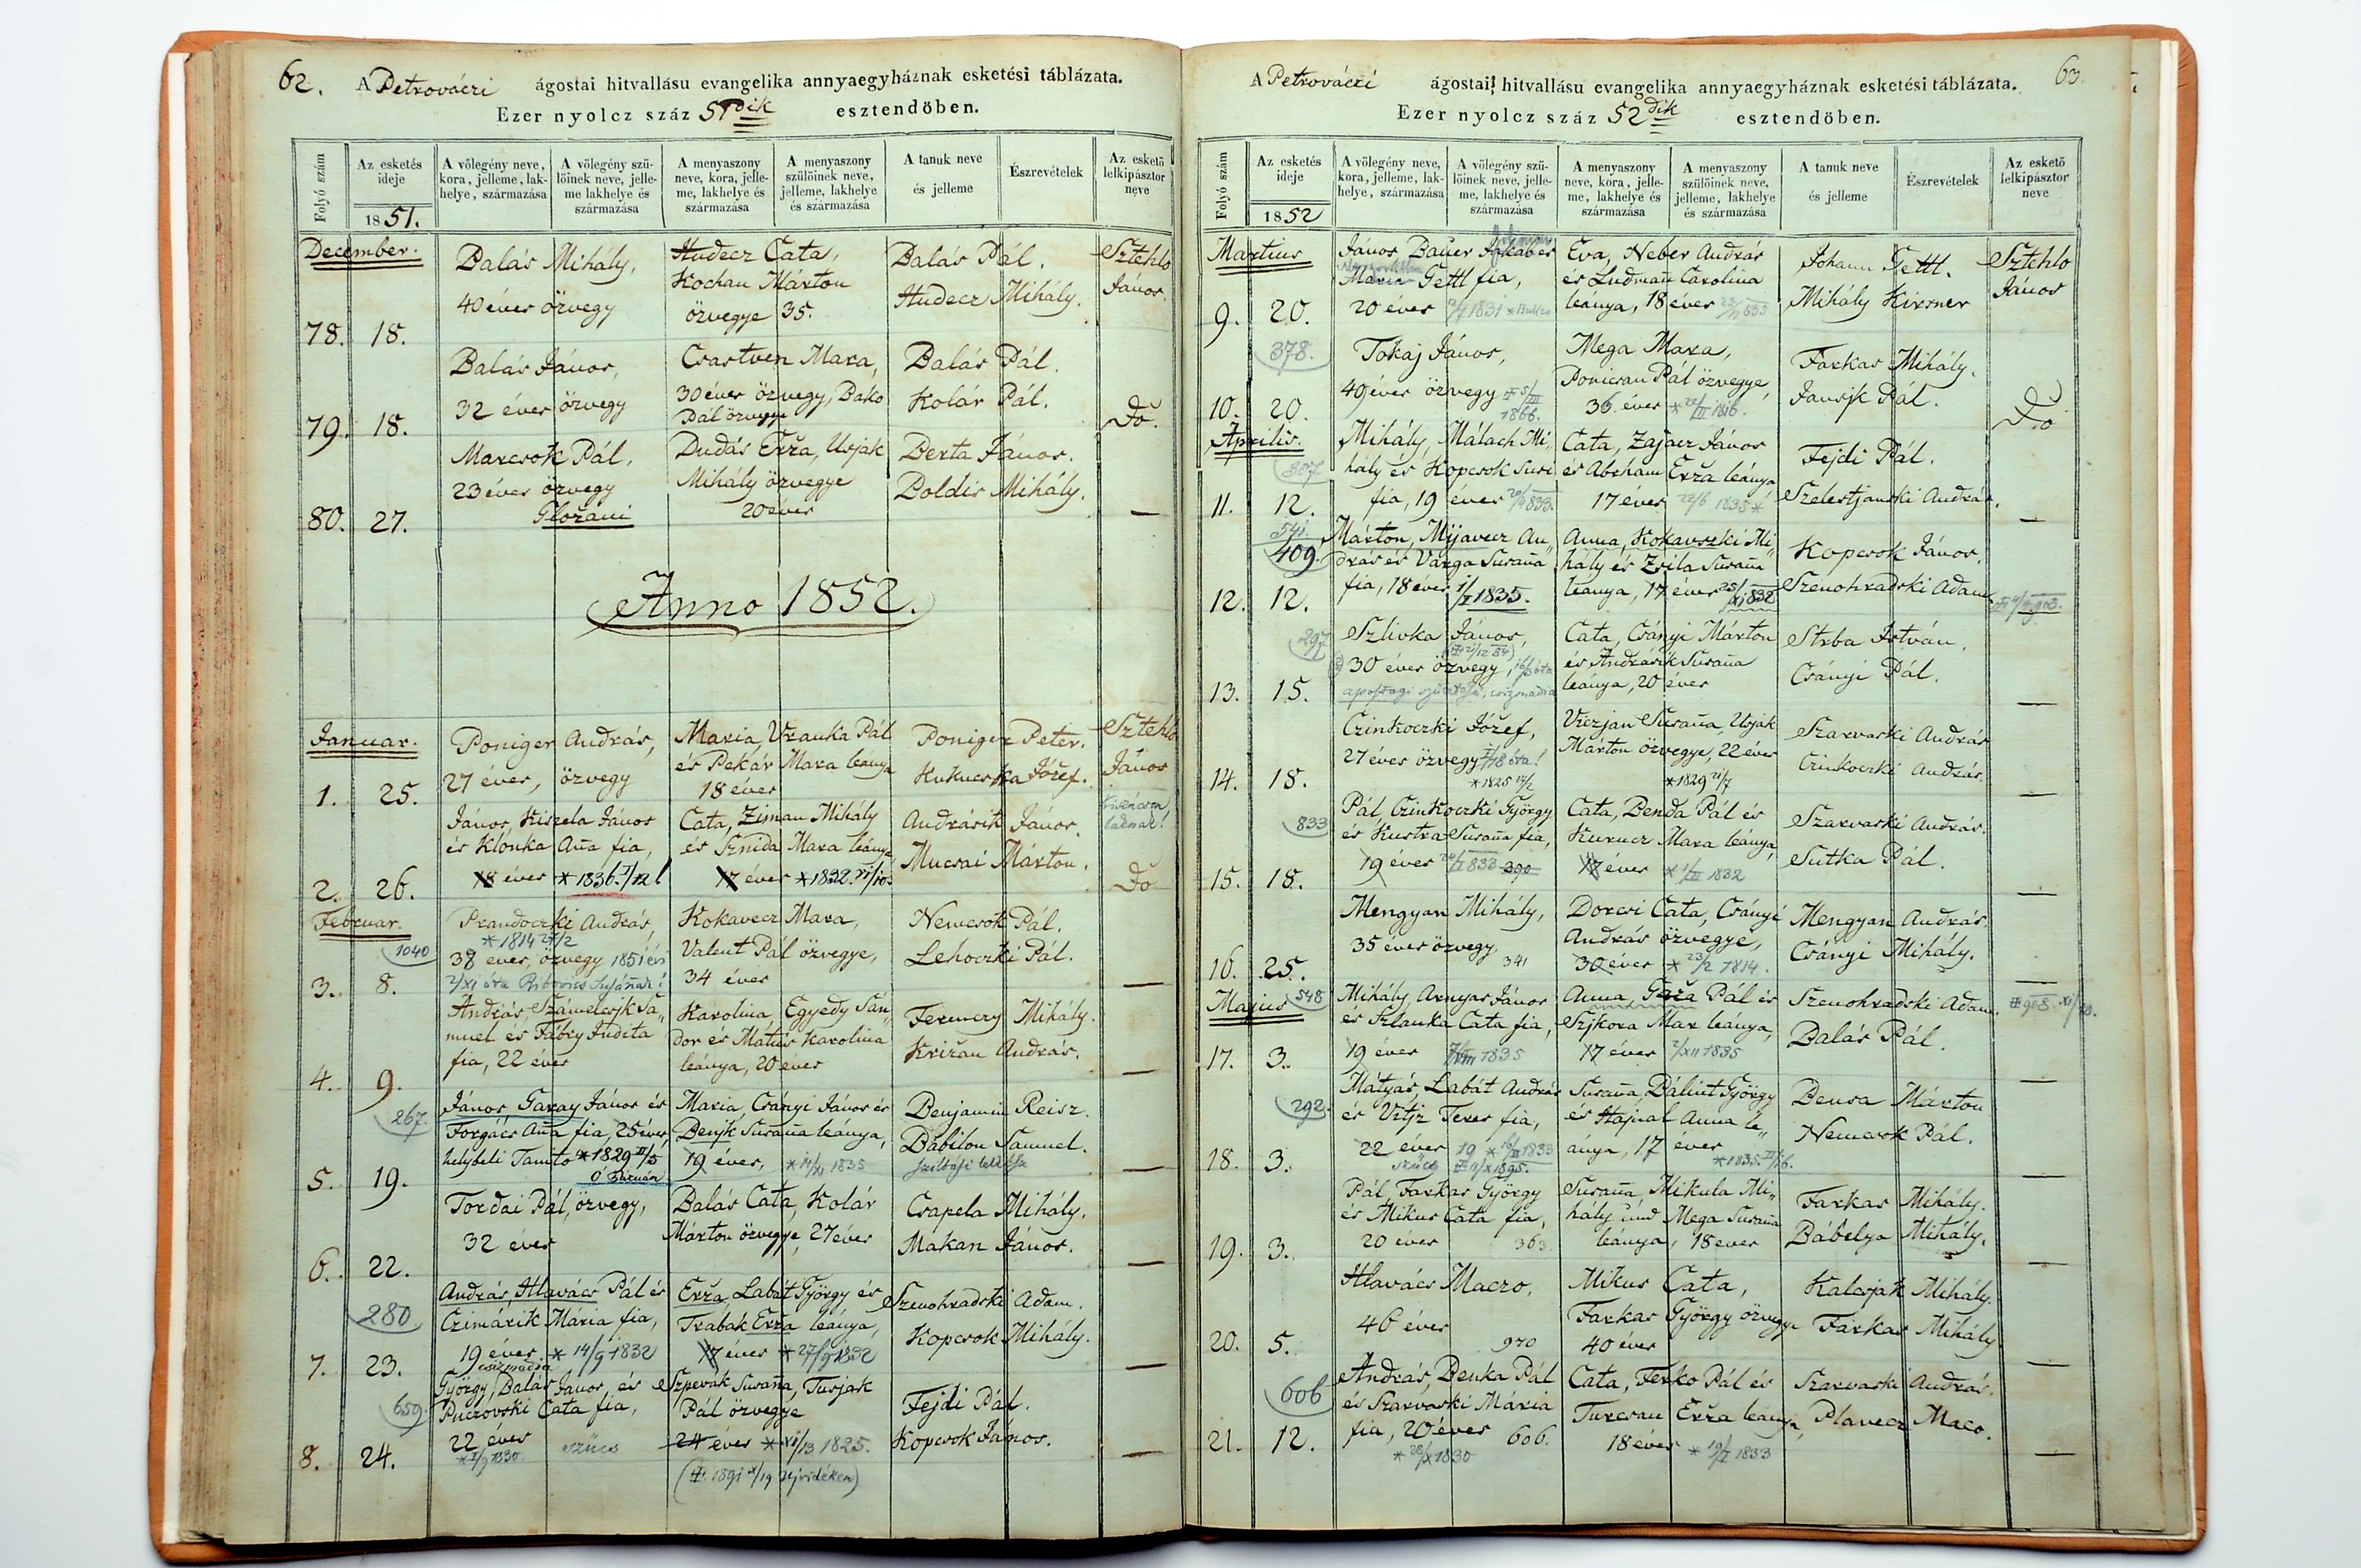 62.
A Petrováczi ágostai hitvallásu evangelika annyaegyháznak esketési táblázata.
Ezer nyolcz száz 51dik esztendöben.
Folyó szám
Az esketés ideje
1851.
A võlegény neve, kora, jelleme, lakhelye, származása
A võlegény szülöinek neve, jelleme lakhelye és származása
A menyaszony neve, kora, jelleme, lakhelye és származása
A menyaszony szülöinek neve, jelleme, lakhelye és származása
A tanuk neve és jelleme
Észrevételek
Az esketõ lelkipásztor neve
December.
78. 18.
Balás Mihály,
40 éves özvegy
Hudecz Cata,
Kochan Márton
özvegye 35.
Balás Pál.
Hudecz Mihály.
Sztehlo
János.
79. 18.
Balás János,
32 éves özvegy
Csastven Mara,
30 éves özvegy, Bako
Pál özvegye
Balás Pál.
Kolár Pál.
Do.
80. 27.
Marcsok Pál,
23 éves özvegy
Glozáni
Dudás Erža, Usjak
Mihály özvegye
20 éves
Berta János.
Boldis Mihály.
—
Anno 1852.
Januar.
1. 25.
Poniger András,
27 éves, özvegy
Maria, Vranka Pál
és Pekár Mara leánya
18 éves
Poniger Peter.
Kukucska Józef.
Sztehlo
János
2. 26.
János, Kiszela János
és Klonka Aña fia,
18 éves *1836 I/12!
Cata, Ziman Mihály
és Sznida Mara leánya
17 éves *1832. VI/10.
Andrásik János.
Mucsai Márton.
Do
Februar.
1040
3. 8.
Prandoczki András,
*1814 24/2
38 éves, özvegy 1851 évi
Kokavecz Mara,
Valent Pál özvegye,
34 éves
Nemcsok Pál.
Lehoczki Pál.
—
4. 9.
András, Számelcsjk Sá„
muel és Fábry Judita
fia, 22 éves
Karolina Egyedy Sán„
dor és Mátius Karolina
leánya, 20 éves
Ferenczy Mihály.
Križan András.
—
267.
5. 19.
János, Garay János és
Forgács Aña fia, 25 éves,
helybeli Tanito *1829 II/5
Ó Bazuán
Maria, Csányi János és
Benjk Susaña leánya,
19 éves, *14/XI 1835
Benjamin Reisz.
Babilon Samuel.
—
6. 22.
Tordai Pál, özvegy,
32 éves
Balás Cata, Kolár
Márton özvegye, 27 éves
Csapela Mihály.
Makan János.
—
280
7. 23.
András, Hlavács Pál és
Czimárik Mária fia,
19 éves * 14/9 1832
csizmadia
Erža, Labát György és
Trabak Erža leánya,
17 éves * 27/9 1832
Szenohradski Adam.
Kopcsok Mihály.
—
659.
8. 24.
György, Balás János és
Puczovski Cata fia,
22 éves
szücs
Szpevak Susaña, Tusjak
Pál özvegye
24 éves * XI/13 1825.
(1891 IX/19 Ujvidéken)
Fejdi Pál.
Kopcsok János.
—
63.
A Petrováczi ágostai hitvallásu evangelika annyaegyháznak esketési táblázata.
Ezer nyolcz száz 52dik esztendöben.
Folyó szám
Az esketés ideje
1852
A võlegény neve, kora, jelleme, lakhelye, származása
A võlegény szülöinek neve, jelleme, lakhelye és származása
A menyaszony neve, kora, jelleme, lakhelye és származása
A menyaszony szülöinek neve, jelleme, lakhelye és származása
A tanuk neve és jelleme
Észrevételek
Az esketõ lelkipásztor neve
Martius
9. 20.
János Bauer Jakab és
Maria Tettl fia,
20 éves
Eva, Neber András
és Ludman Carolina
leánya, 18 éves
Johann Tettl.
Mihály Kirsner
Sztehlo
János
378.
10. 20.
Tokaj János,
49 éves özvegy
1866.
Mega Mara,
Ponicsan Pál özvegye,
36. éves
Farkas Mihály.
Jansjk Pál.
Do
Aprilis.
307
11. 12.
Mihály, Málach Mi„
hály és Kopcsok Susi
fia, 19 éves
Cata, Zajacz János
és Abraham Erža leánya
17 éves 22/6 1835 *
Fejdi Pál.
Szelestjanski András.
—
541.
409.
12. 12.
Márton, Mijavecz An„
drás és Varga Susaña
fia, 18 éves 1/I 1835.
Anna, Kokavszki Mi„
hály és Zsila Susaña
leánya, 17 éves 25/XI 832
Kopcsok János.
Szenohradski Adam.
297
13. 15.
Szlivka János,
30 éves özvegy,
Cata, Csányi Márton
és Andrásik Susaña
leánya, 20 éves
Strba István,
Csányi Pál.
—
14. 18.
Czinkoczki Józef,
27 éves özvegy
*1825 14/2
Viczjan Susaña, Usjak
Márton özvegye, 22 éves
*1829 21/7
Szarvaski András
Czinkoczki András.
—
833
15. 18.
Pál, Czinkoczki György
és Kustra Susaña fia,
19 éves
Cata, Benda Pál és
Kurucz Mara leánya,
17 éves * 1/III 1832
Szarvaski András.
Sutka Pál.
—
16. 25.
Mengyan Mihály,
35 éves özvegy
341
Dorcsi Cata, Csányi
András özvegye,
30 éves * 23/2 1814.
Mengyan András.
Csányi Mihály.
—
Majus
548
17. 3.
Mihály, Arnyas János
és Szlanka Cata fia,
19 éves
Anna, Gaža Pál és
Szjkora Mar leánya,
17 éves 2/XII 1835
Szenohradski Adam.
Balás Pál.
—
292.
18. 3.
Mátyás, Labát András
és Vrtjz Teres fia,
22 éves 19
szücs
Susaña, Bálint György
és Hajnal Anna le„
ánya, 17 éves
Bensa Márton
Nemcsok Pál.
—
19. 3.
Pál, Farkas György
és Mikus Cata fia,
20 éves 363.
Susaña, Mikula Mi„
hály und Mega Susaña
leánya, 18 éves
Farkas Mihály.
Bábelya Mihály.
—
20. 5.
Hlavács Maczo,
46 éves
970
Mikus Cata,
Farkas György özvegye
40 éves
Kalcsjak Mihály.
Farkas Mihály
—
606
21. 12.
András, Benka Pál
és Szarvaski Mária
fia, 20 éves 606.
* 28/X 1830
Cata, Ferko Pál és
Turcsan Erža leánya,
18 éves * 19/I 1833
Szarvaski András.
Plavecz Maco.
—